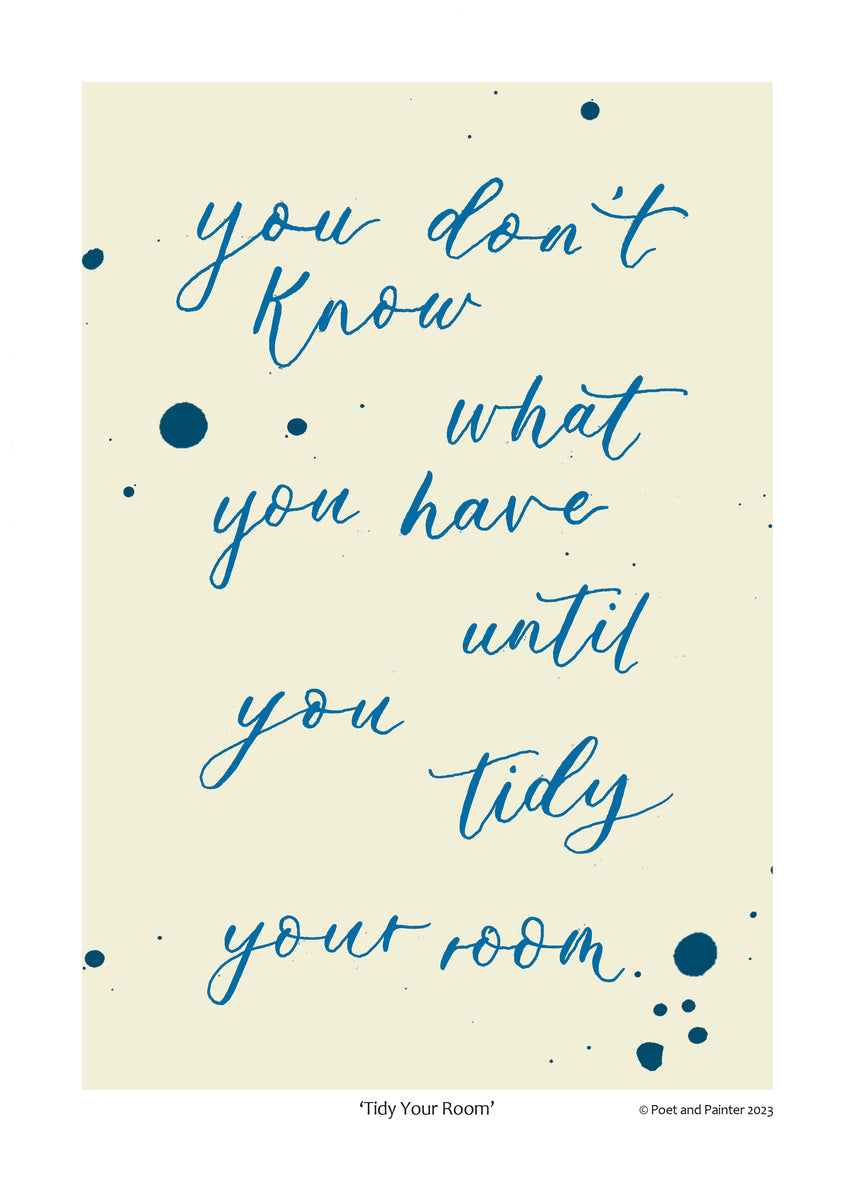 you don't
Know
what
you have
until
you
tidy
your room.
‘Tidy Your Room’
© Poet and Painter 2023